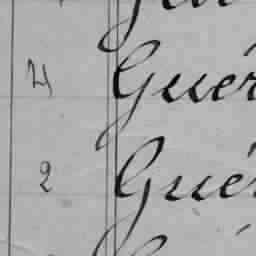 4 Guér
2 Gué